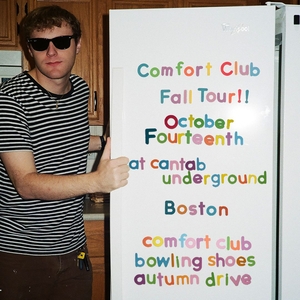 Comfort Club
Fall Tour!!
October
Fourteenth
at cantab
underground
Boston
comfort club
bowling shoes
autumn drive